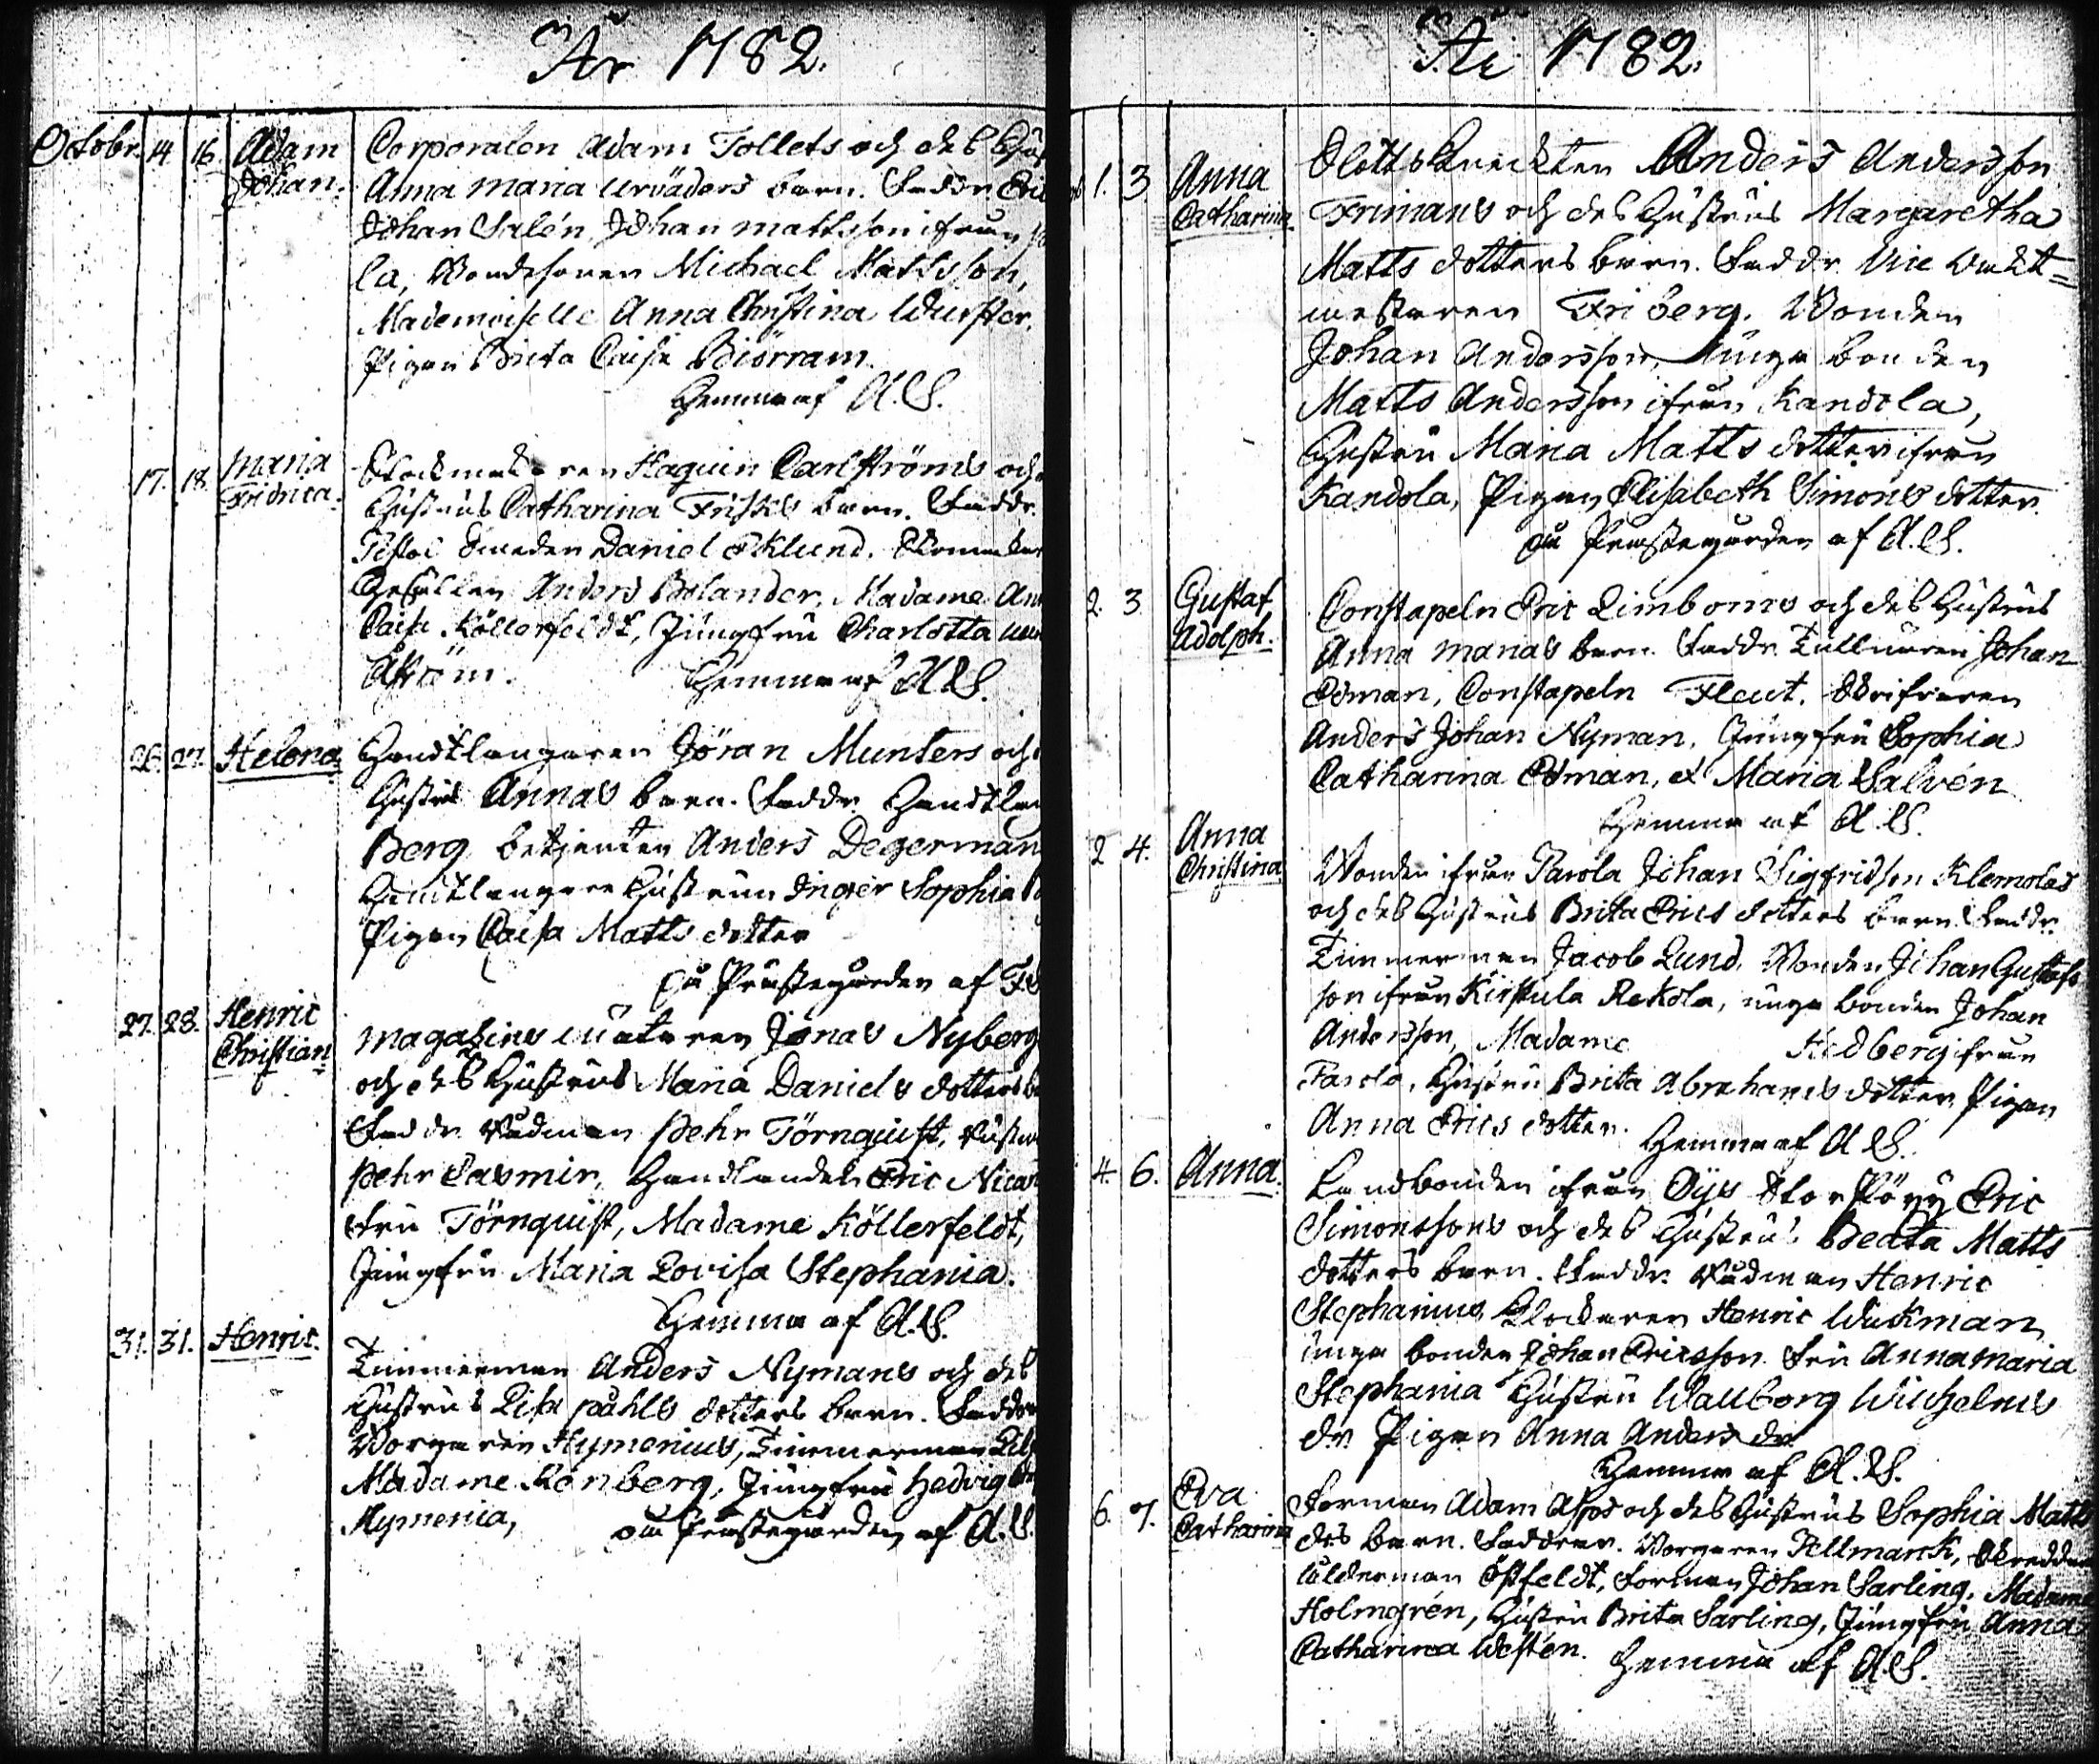 År 1782.
Octobr. 14. 16. Adam Johan.
Corporalen Adam Tollets och des
Anna Maria barn. Faddr.
Johan Salén, Johan Mattsson ifrån
la, Bondesonen Michael Mattsson,
Mademoiselle Anna Christina Wurster.
Pigan Brita Caisa Biörram.
Hemma af A.S.
17. 18. Maria Fridrica.
Klockmakaren Haquin Carlströms och
Hustrus Catharina Frisks barn. Faddr.
Daniel Eklund.
Gesällen Anders Bolander, Madame
Caisa Köllerfeldt, Jungfru Charlotta
Åström. Hemma af A.S.
26. 27. Helena
Handtlangaren Jöran Munters och
Hustrus Annas barn. Faddr. Handtlan
Berg, betjenten Anders Degerman
Handtlangare Hustrun Inger Sophia
Pigan Caisa Matts dotter
på Prästegården af
27. 28. Henric Christian
Magazins Jonas Nyberg
och des Hustrus Maria Daniels dotters
Faddr. Rådman Pehr Törnquist,
Pehr Casmir, Handlanden Eric
Fru Törnquist, Madame Köllerfeldt,
Jungfru Maria Lovisa Stephania.
Hemma af A.S.
31. 31. Henric.
Timmerman Anders Nymans och des
Hustrus Lisa Påhls dotters barn. Faddr
Borgaren Hymenius, Timmerman
Madame Rönberg, Jungfru Hedvig
Hymenia, på Prästegården af A.S.
År 1782.
1. 3 Anna Catharina.
Slottsknekten Anders Andersson
Frimans och des Hustrus Margaretha
Matts dotters barn. Faddr. Vice Vakt=
mästaren Friberg. Bonden
Johan Andersson, unga bonden
Matts Andersson ifrån Kandola,
Hustru Maria Matts dotter ifrån
Kandola, Pigan Elisabeth Simons dotter
på Prästegården af A.S.
2. 3 Gustaf Adolph.
Constapeln Eric Limboms och des Hustrus
Anna Marias barn. Faddr. Johan
Ödman, Constapeln Fleut. Skrifvaren
Anders Johan Nyman, Jungfru Sophia
Catharina Ödman, et Maria Salvén
Hemma af A.S.
2 4. Anna Christina
Bonden ifrån Parola Johan Sigfridsson Klemolas
och des Hustrus Brita Erics dotters barn. Faddr.
Timmerman Jacob Lund, Bonden Johan Gustafs
son ifrån Kirstula Rekola, unga bonden Johan
Andersson, Madame Hedberg ifrån
Parola, Hustru Brita Abrahams dotter Pigan
Anna Erics dotter. Hemma af A.S.
4. 6. Anna.
Landbonden ifrån Öijs Eric
Simonssons och des Hustrus Beata Matts
dotters barn. Faddr. Rådman Henric
Stephanius, Klockaren Henric Wickman
unga bonden Johan Ericsson. Fru Anna Maria
Stephania Hustru Wallborg Wilhelms
dr. Pigan Anna Anders dr.
Hemma af A.S.
6. 7. Eva Catharina
Forman Adam och des Hustrus Sophia Matts
drs barn. Faddrar. Borgaren Fellmarck,
ålderman Östfeldt, Forman Johan Sarling, Madame
Holmgrén, Hustru Brita Sarling, Jungfru Anna
Catharina Westén. Hemma af A.S.